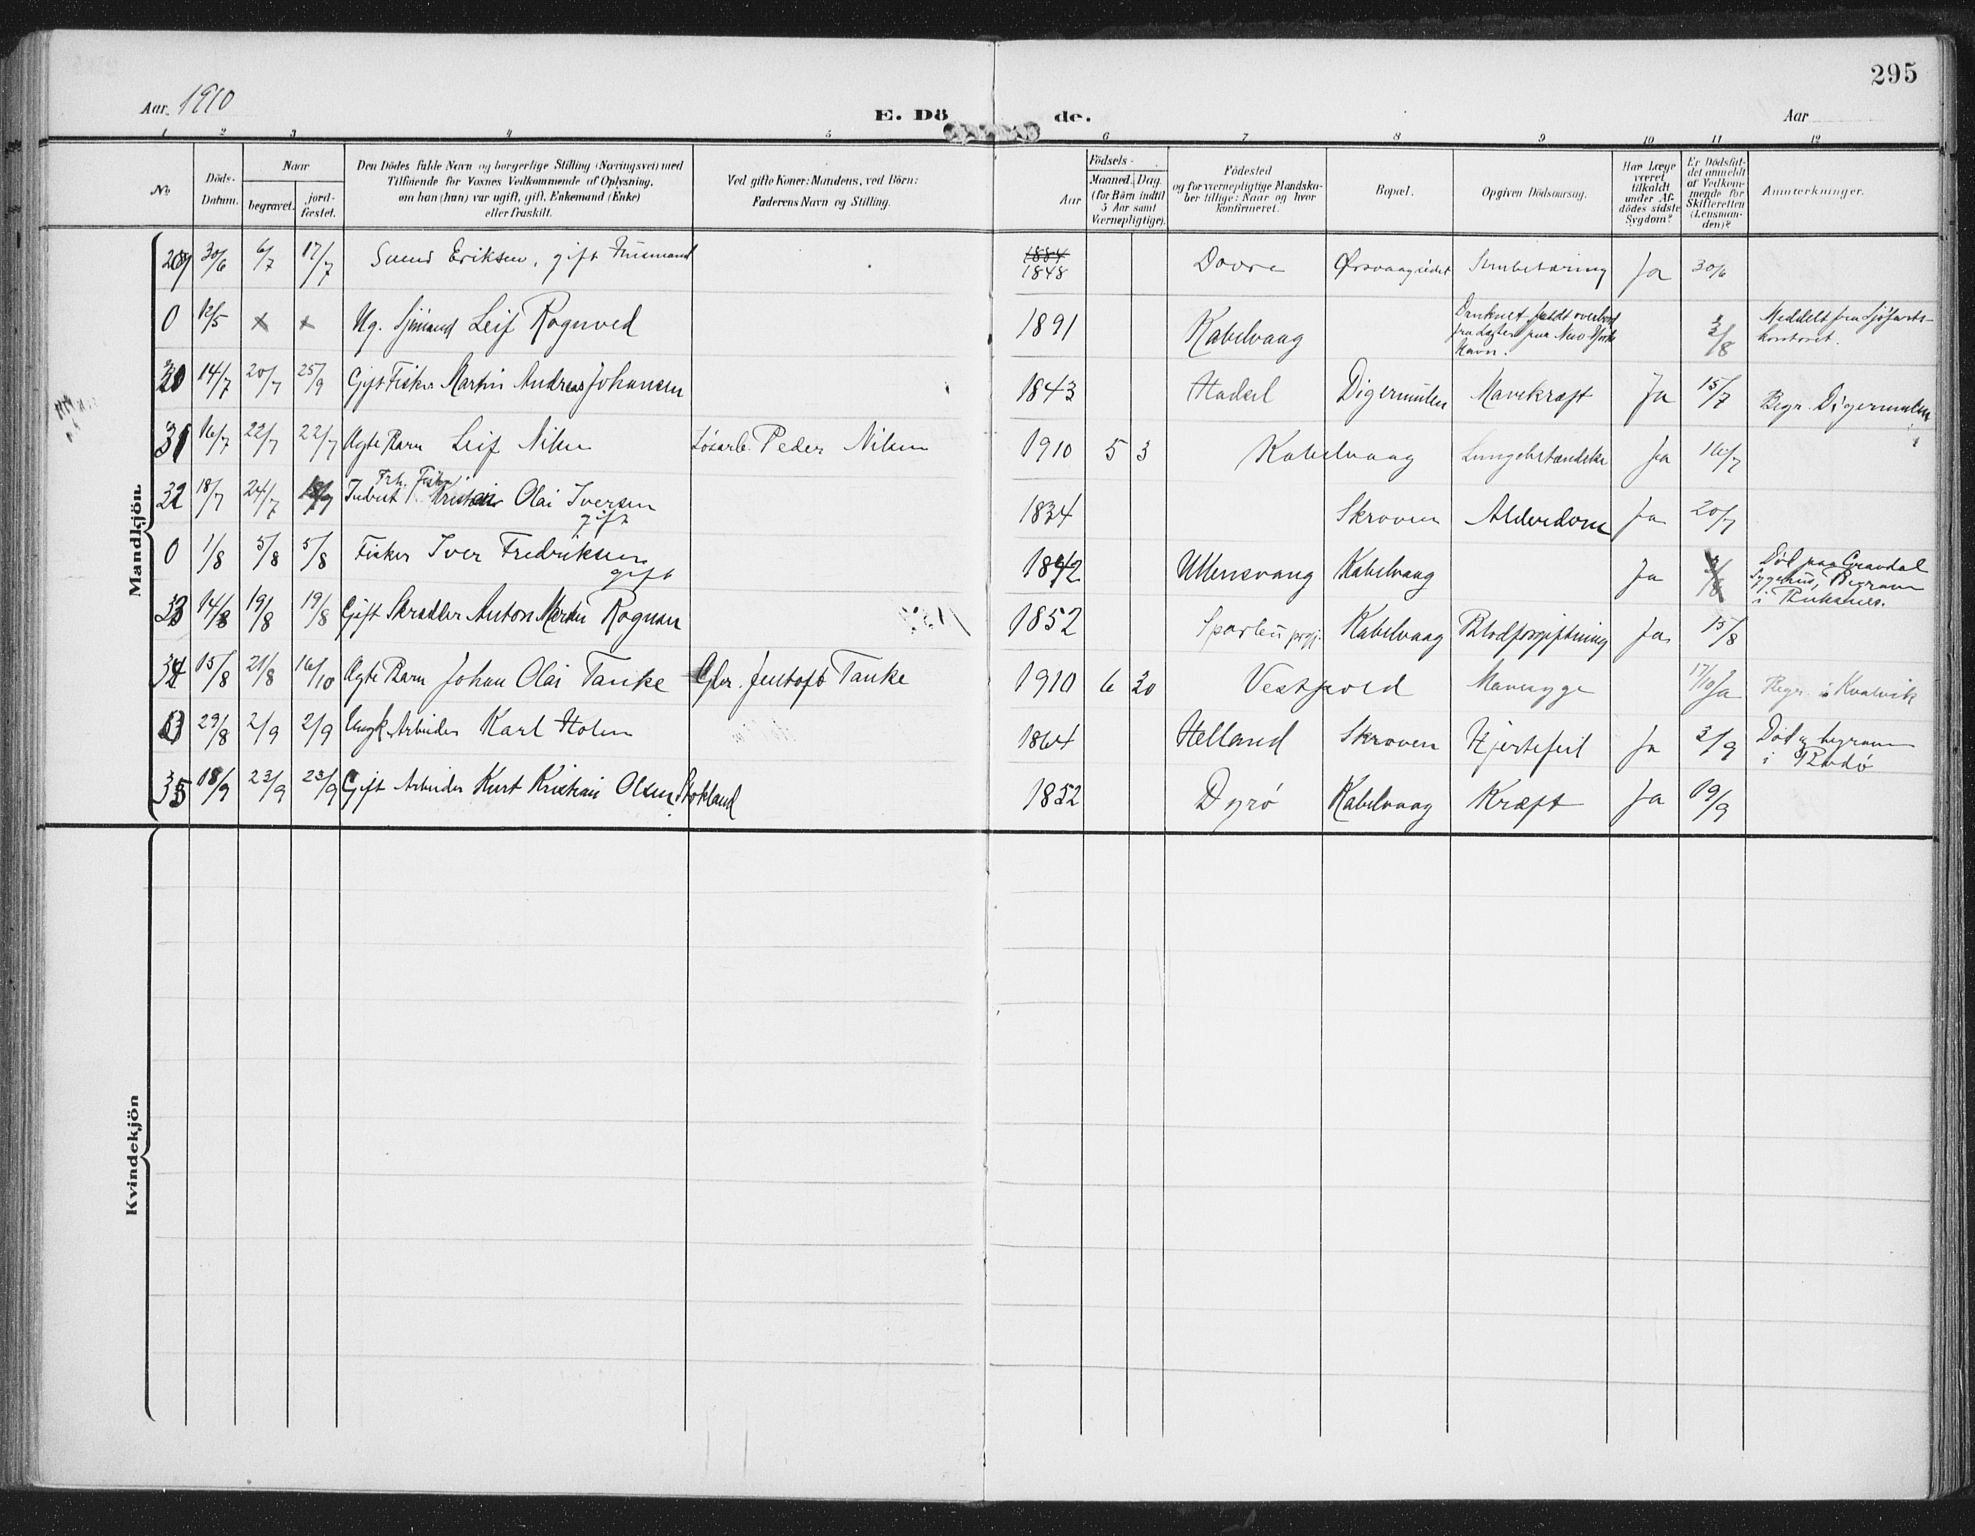 295
Aar 1910 E. Dö de. Aar
1 2 3 4 5 6 7 8 9 10 11 12
No
Döds-
Datum.
Naar
begravet.
jord-
fæstet.
Den Dödes fulde Navn og borgerlige Stilling (Næringsvei) med
Tilföiende for Voxnes Vedkommende af Oplysning,
om han (hun) var ugift, gift, Enkemand (Enke)
eller fraskilt.
Ved gifte Koner: Mandens, ved Börn:
Faderens Navn og Stilling.
Födsels-
Aar
Maaned. Dag
(for Börn indtil
5 Aar samt
Værnepligtige).
Födested
og for værnepligtige Mandska-
ber tillige: Naar og hvor
konfirmeret.
Bopæl.
Opgiven Dödsaarsag.
Har Læge
været
tilkaldt
under Af-
dödes sidste
Sygdom?
Er Dödsfal-
det anmeldt
af Vedkom-
mende for
Skifteretten
(Lensman-
den)?
Anmerkninger.
Mandkjön.
30/6 6/7 17/7 Svend Eriksen, gift Husmand 1884 1848 Dovre Ja 30/6
0 12/5 x x Ug. Sjömand Leif Rognved 1891 Kabelvaag Druknet faldt overbord
Havn. Meddelt fra Sjöfarts-
kontoret.
30 14/7 20/7 25/9 Gift Fisker Martin Andreas Johansen 1843 Hadsel Digermulen Mavekræft Ja 15/7 Begr. Digermulen
31 16/7 22/7 22/7 Ægte Barn Leif Nilsen Løsarb. Peder Nilsen 1910 5 3 Kabelvaag Ja 16/7
32 18/7 24/7 Frh. Fisker
Olai Iversen
gift 1834 Skroven Alderdom Ja 20/7
0 1/8 5/8 5/8 Fisker Iver Fredriksen
gift 1842 Ullensvang Kabelvaag Ja Død paa Gravdal
Sygehus, Begravn
i Buksnes.
33 14/8 19/8 19/8 Gift Skrædder Anton Martin Rognan 1852 Kabelvaag Blodforgiftning Ja 15/8
34 15/8 21/8 16/10 Ægte Barn Johan Olai Tanke Jentoft Tanke 1910 6 20 Vestfjord Mavesyge 17/10 Ja Begr. i Kvalvik
29/8 2/9 2/9 Arbeider Karl Holm 1864 Helland Skroven Hjertefeil Ja 3/9 Død og begraven
i
35 18/9 23/9 23/9 Gift Arbeider Kurt Kristian Olsen Stokland 1852 Dyrø Kabelvaag Kræft Ja 19/9
Kvindekjön